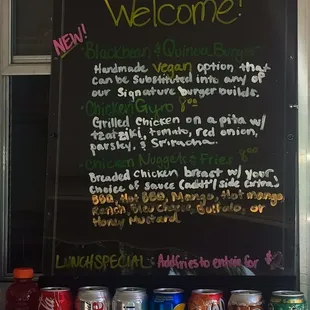 Welcome!
NEW!
Blackbean & Quinoa Burger
Handmade vegan option that
can be substituted into any of
our signature burger builds.
Chicken Gyro 8.00
Grilled chicken on a pita w/
tzatziki, tomato, red onion,
parsley, & Sriracha.
Chicken Nuggets & Fries 8.00
Breaded chicken breast w/ your
choice of sauce (addt'l side extra)
BBQ, Hot BBQ, Mango, Hot mango
Ranch, Bleu Cheese, Buffalo, or
Honey Mustard
LUNCH SPECIAL: Add fries to entrée for $